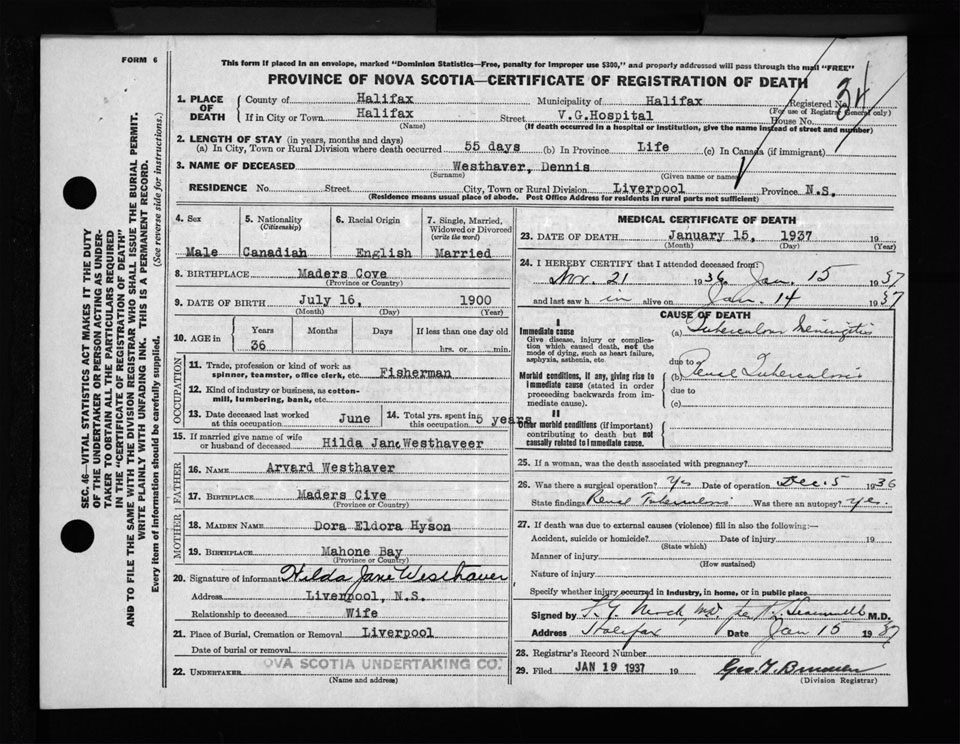 FORM 6
This form if placed in an envelope, marked "Dominion Statistics—Free, penalty for improper use $300," and properly addressed will pass through the mail "FREE"
PROVINCE OF NOVA SCOTIA—CERTIFICATE OF REGISTRATION OF DEATH
1. PLACE OF DEATH
County of Halifax Municipality of Halifax Registered No. 34
(For use of Registrar General only)
If in City or Town Halifax Street V.G.Hospital House No.
(Name) (If death occurred in a hospital or institution, give the name instead of street and number)
2. LENGTH OF STAY (in years, months and days)
(a) In City, Town or Rural Division where death occurred 55 days (b) In Province Life (c) In Canada (if immigrant)
3. NAME OF DECEASED Westhaver, Dennis
(Surname) (Given name or names)
RESIDENCE No. Street City, Town or Rural Division Liverpool Province N.S.
(Residence means usual place of abode. Post Office Address for residents in rural parts not sufficient)
4. Sex 5. Nationality (Citizenship) 6. Racial Origin 7. Single, Married, Widowed or Divorced (write the word)
Male Canadian English Married
8. BIRTHPLACE Maders Cove
(Province or Country)
9. DATE OF BIRTH July 16, 1900
(Month) (Day) (Year)
10. AGE in Years Months Days If less than one day old
36 hrs. or min.
OCCUPATION
11. Trade, profession or kind of work as spinner, teamster, office clerk, etc. Fisherman
12. Kind of industry or business, as cotton-mill, lumbering, bank, etc.
13. Date deceased last worked at this occupation June 14. Total yrs. spent in this occupation 5 years
15. If married give name of wife or husband of deceased Hilda Jane Westhaveer
FATHER
16. NAME Arvard Westhaver
17. BIRTHPLACE Maders Cive
(Province or Country)
MOTHER
18. MAIDEN NAME Dora Eldora Hyson
19. BIRTHPLACE Mahone Bay
(Province or Country)
20. Signature of informant Hilda Jane Westhaver
Address Liverpool, N.S.
Relationship to deceased Wife
21. Place of Burial, Cremation or Removal Liverpool
Date of burial or removal
22. UNDERTAKER OVA SCOTIA UNDERTAKING CO.
(Name and address)
MEDICAL CERTIFICATE OF DEATH
23. DATE OF DEATH January 15, 1937 19
(Month) (Day) (Year)
24. I HEREBY CERTIFY that I attended deceased from:
Nov. 21 1936 Jan. 15 1937
and last saw h im alive on Jan. 14 1937
CAUSE OF DEATH
I
Immediate cause
Give disease, injury or complication which caused death, not the mode of dying, such as heart failure, asphyxia, asthenia, etc.
(a) Tuberculous Meningitis
due to
Morbid conditions, if any, giving rise to immediate cause (stated in order proceeding backwards from immediate cause).
(b) Renal Tuberculosis
due to
(c)
II
Other morbid conditions (if important) contributing to death but not causally related to immediate cause.
25. If a woman, was the death associated with pregnancy?
26. Was there a surgical operation? Yes Date of operation Dec. 5 1936
State findings Renal Tuberculosis Was there an autopsy? yes.
27. If death was due to external causes (violence) fill in also the following:—
Accident, suicide or homicide? Date of injury 19
(State which)
Manner of injury
(How sustained)
Nature of injury
Specify whether injury occurred in industry, in home, or in public place
Signed by M.D.
Address Halifax Date Jan 15 1937
28. Registrar's Record Number
29. Filed JAN 19 1937 19
(Division Registrar)
SEC. 46—VITAL STATISTICS ACT MAKES IT THE DUTY
OF THE UNDERTAKER OR PERSON ACTING AS UNDER-
TAKER TO OBTAIN ALL THE PARTICULARS REQUIRED
IN THE "CERTIFICATE OF REGISTRATION OF DEATH"
AND TO FILE THE SAME WITH THE DIVISION REGISTRAR WHO SHALL ISSUE THE BURIAL PERMIT.
WRITE PLAINLY WITH UNFADING INK. THIS IS A PERMANENT RECORD.
Every item of information should be carefully supplied. (See reverse side for instructions.)